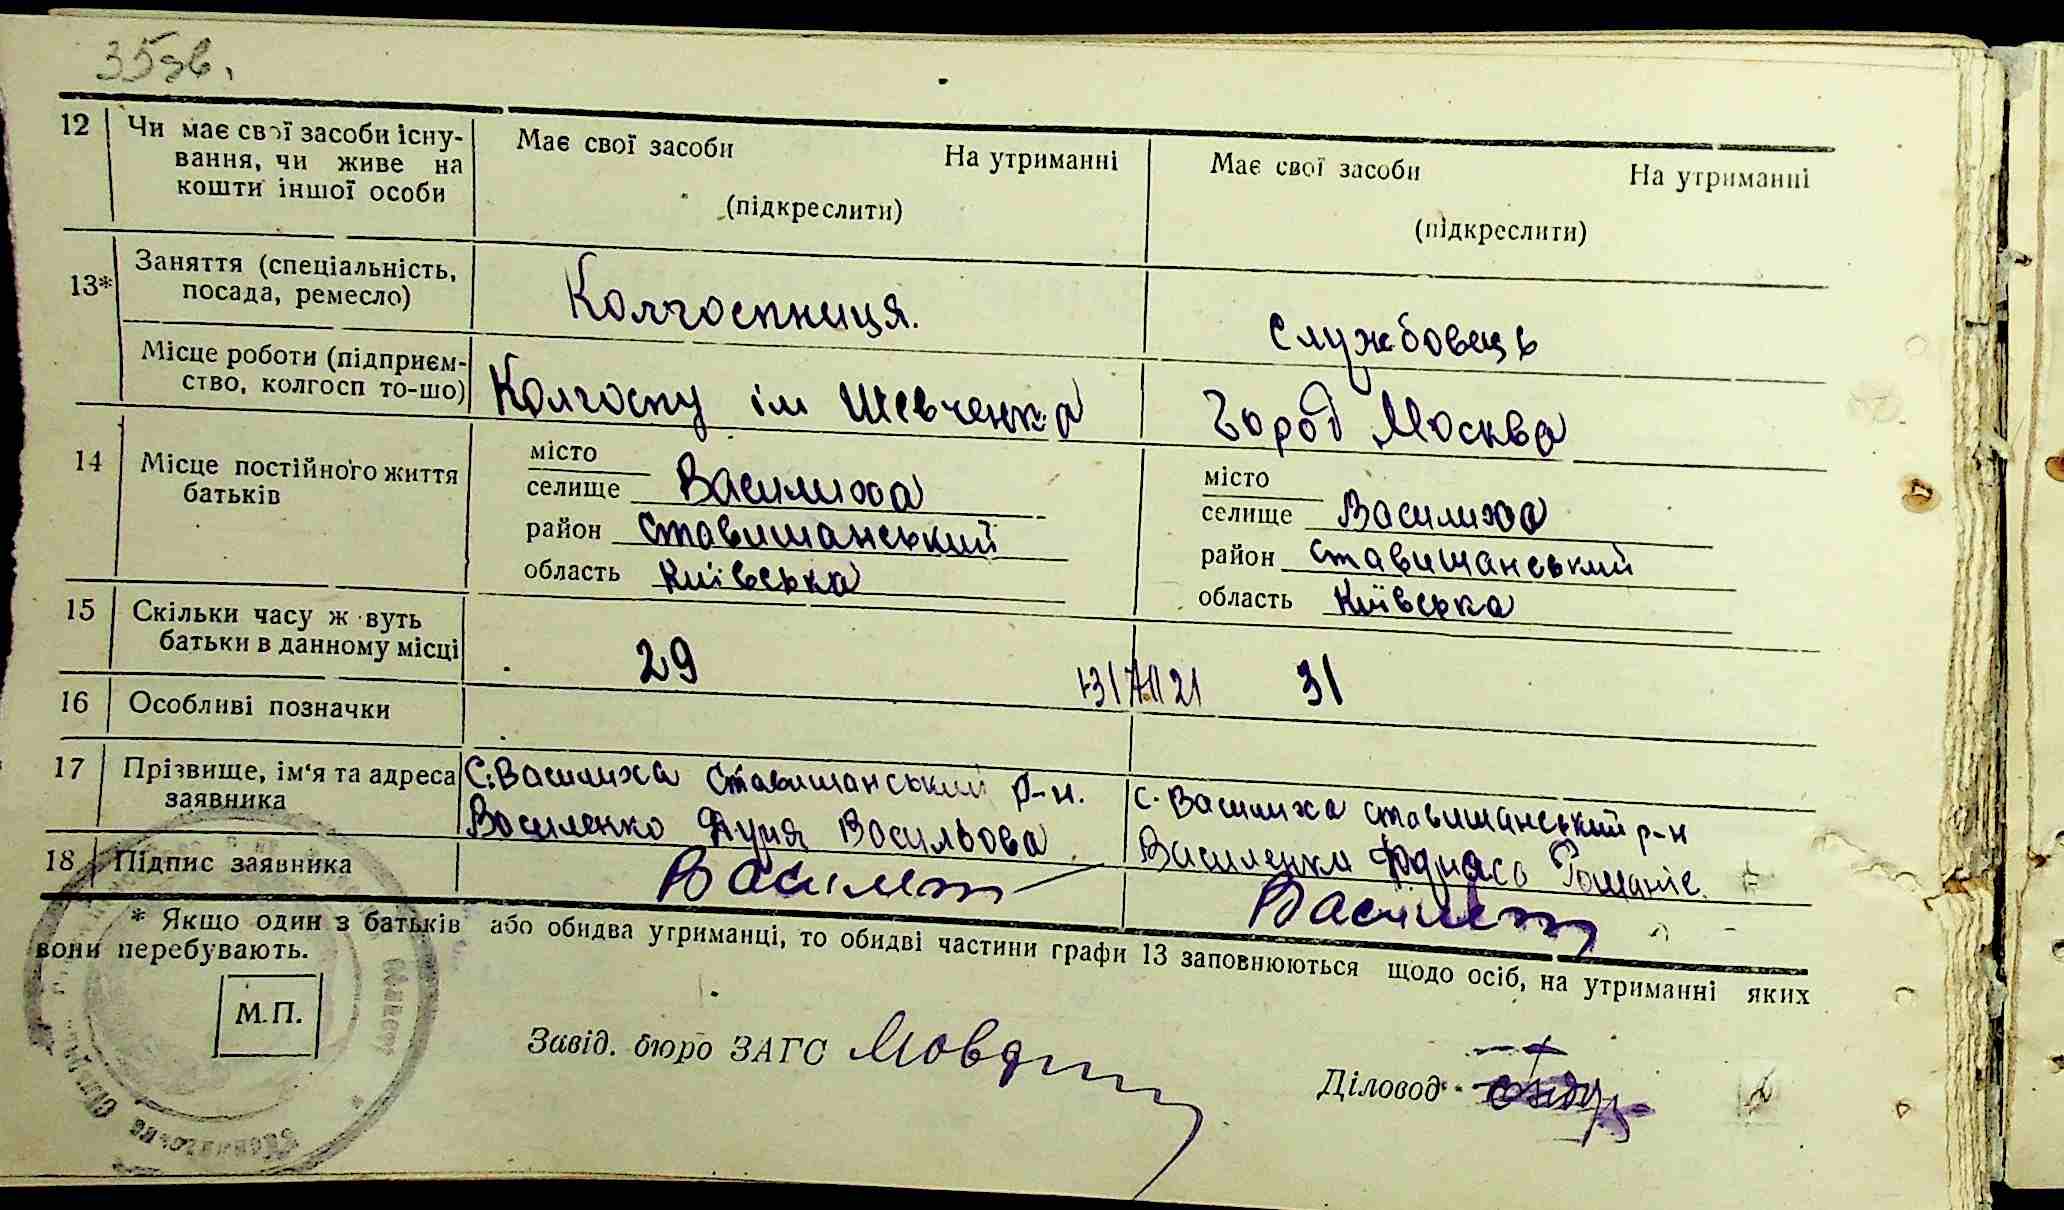 35 зв.
12 Чи має свої засоби існу- Має свої засоби На утриманні Має свої засоби На утриманні
вання, чи живе на
кошти іншої особи (підкреслити) (підкреслити)
13* Заняття (спеціальність, Колгоспниця. Службовець
посада, ремесло)
Місце роботи (підприєм- Колгоспу ім Шевченка Город Москва
ство, колгосп то-що)
14 Місце постійного життя місто місто
батьків селище Василиха селище Василиха
район Ставищанський район Ставищанський
область Київська область Київська
15 Скільки часу ж вуть 29 31
батьки в данному місці
16 Особливі позначки
17 Прізвище, ім'я та адреса С. Василиха Ставищанський р-н. с. Василиха Ставищанський р-н
заявника Василенко Васильова Василенко
18 Підпис заявника
* Якщо один з батьків або обидва утриманці, то обидві частини графи 13 заповнюються щодо осіб, на утриманні яких
вони перебувають.
М.П.
Завід. бюро ЗАГС Діловод